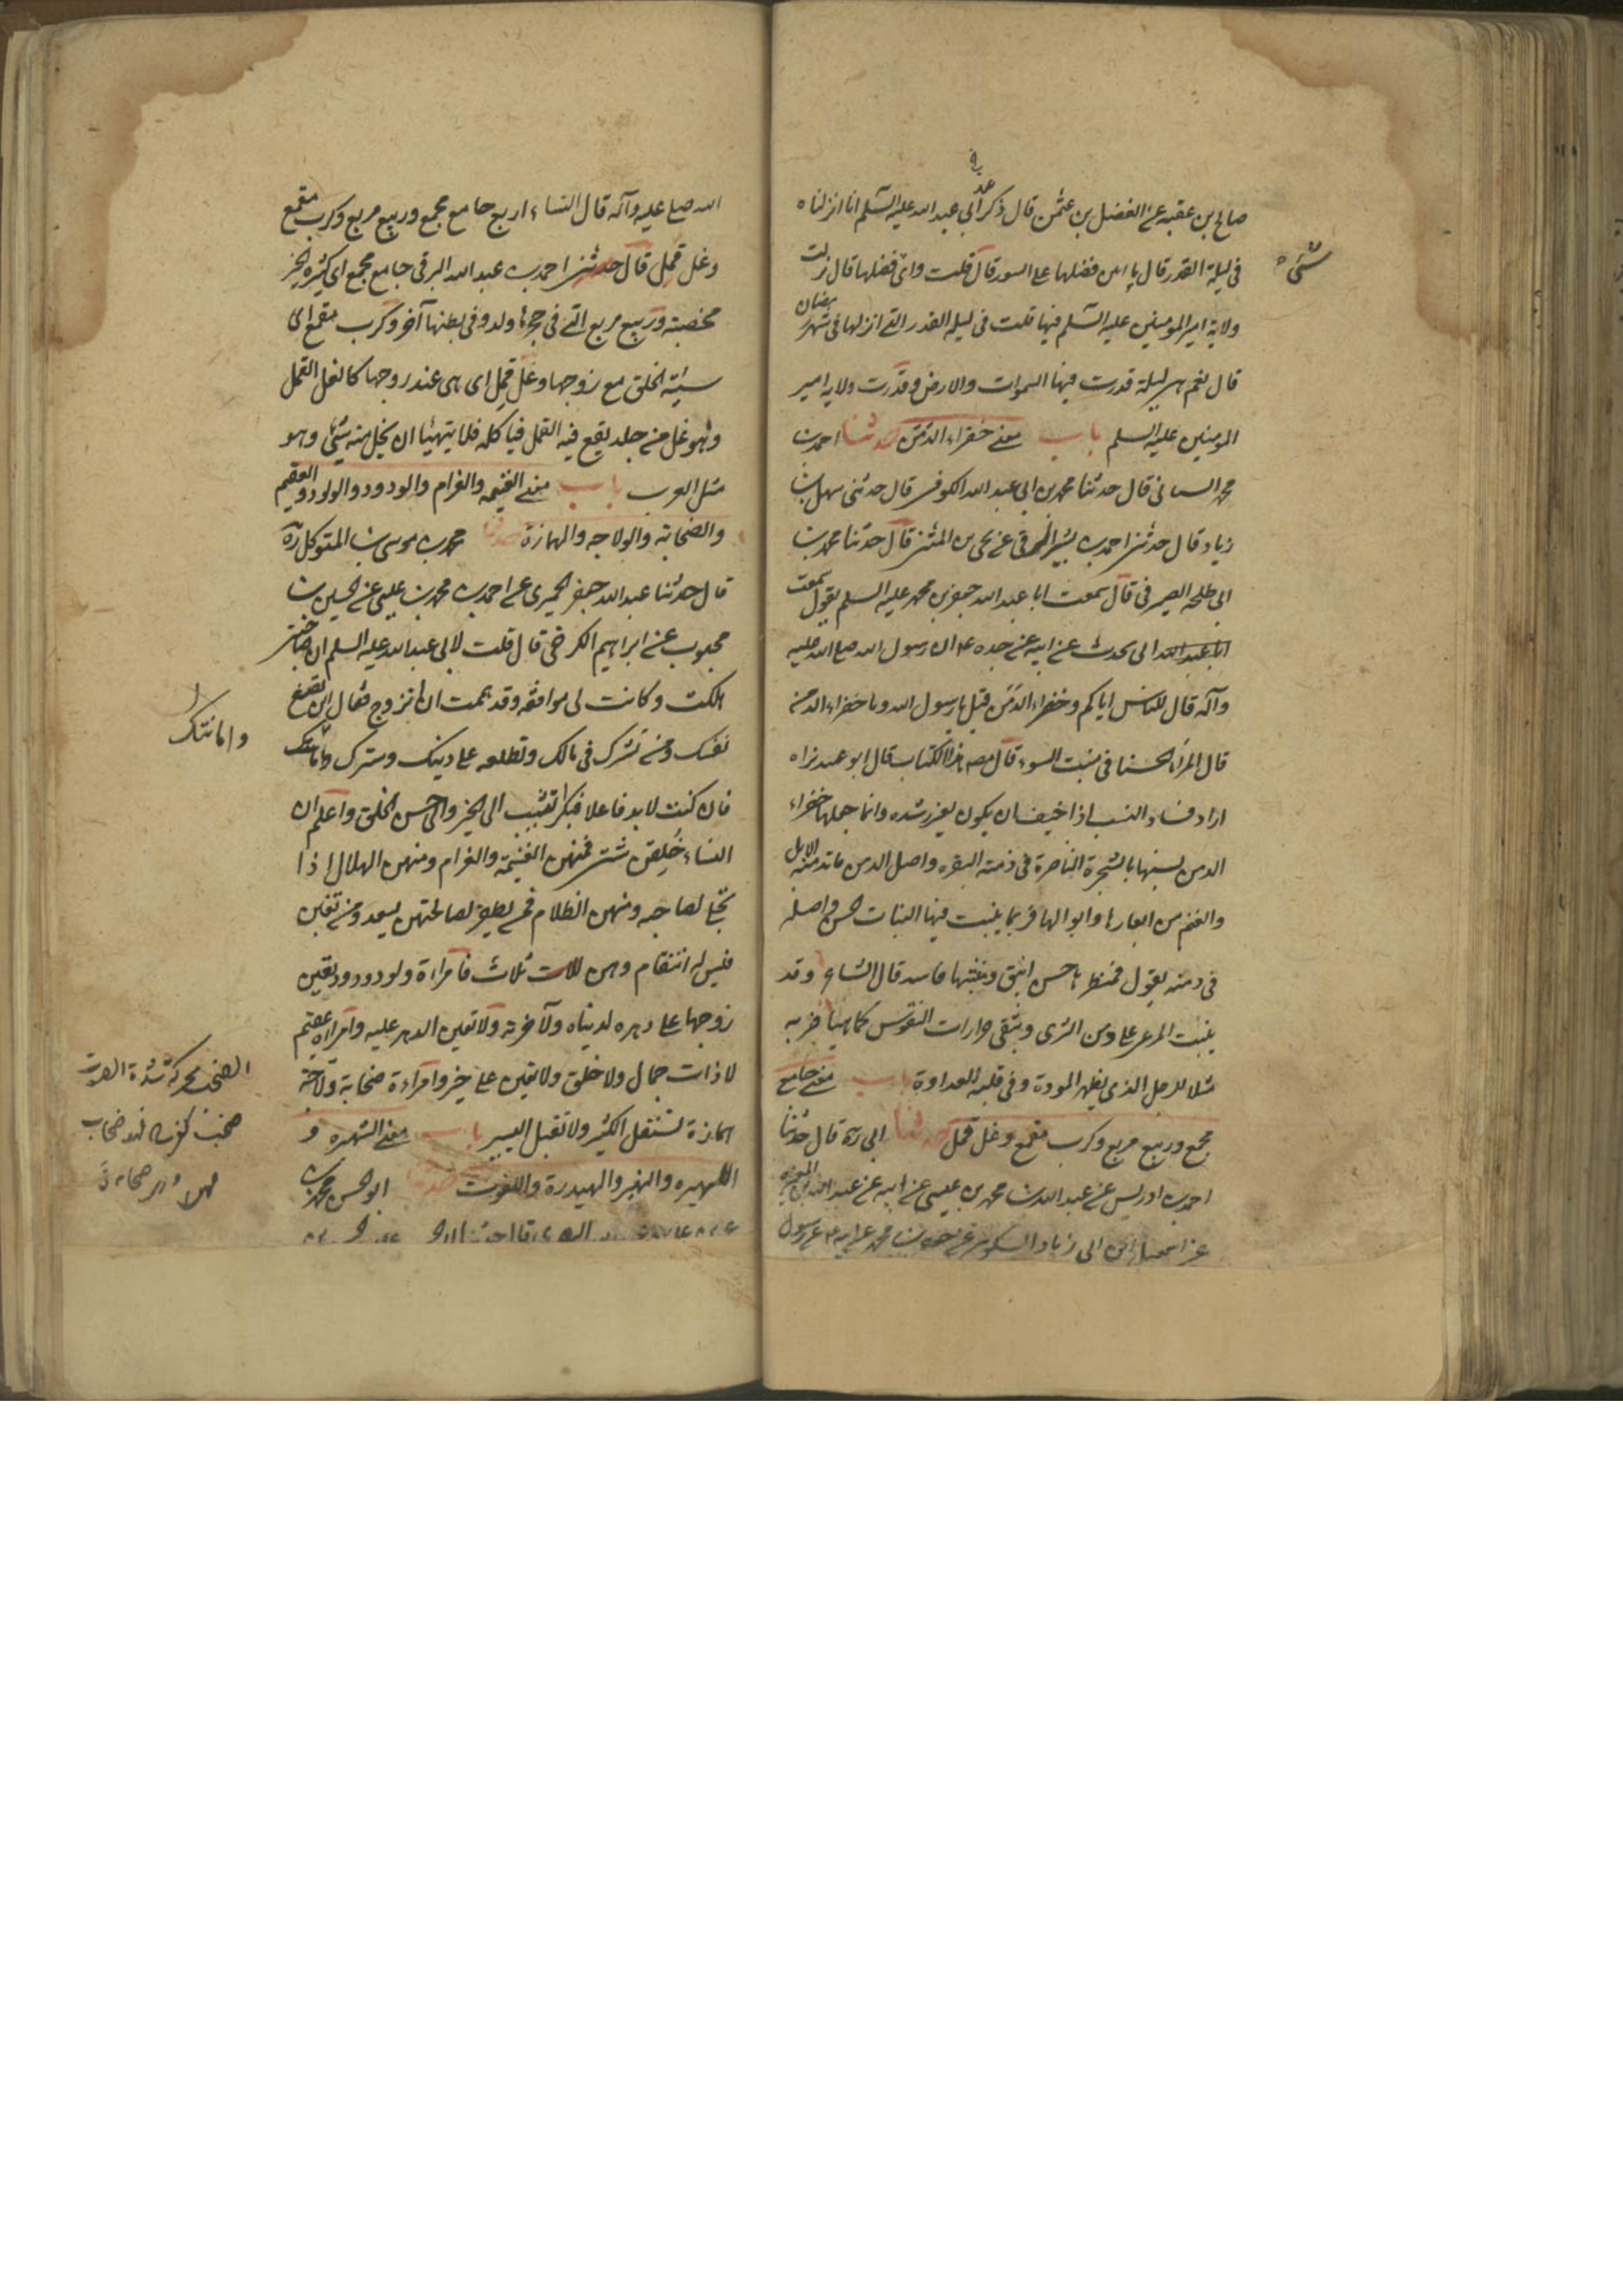 صالح بن عقبه عن الفضل بن عثمن قال ذكر عند ابي عبد الله عليه السلم انا انزلناه
في ليلة القدر قال ما ابين فضلها على السور قال قلت واي فضلها قال نزلت
شيء
ولاية امير المومنين عليه السلم فيها قلت في ليلة القدر التي انزلها في شهر رمضان
قال نعم هي ليلة قدرت فيها السموات والارض وقدرت ولاية امير
المومنين عليه السلم باب معنى خضراء الدمن حدثنا احمد بن
محمد قال حدثنا محمد بن ابي عبد الله الكوفي قال حدثني سهل بن
زياد قال حدثني احمد بن بشير البرقي عن يحيى بن المثنى قال حدثنا محمد بن
ابي طلحة الصيرفي قال سمعت ابا عبد الله جعفر بن محمد عليه السلم يقول سمعت
ابي يحدث عن ابيه عن جده ع ان رسول الله صلى الله عليه
وآله قال للناس اياكم وخضراء الدمن قيل يا رسول الله وما خضراء الدمن
قال المرأة الحسنا في منبت السوء قال مصنف هذا الكتاب قال ابو عبيد نراه
اراد فساد النسب اذا خيف ان يكون لغير رشده وانما جعلها خضراء
الدمن تشبيها بالشجرة الناضرة في دمنة البقره واصل الدمن ما تدمنه الابل
والغنم من ابعارها وابوالها فربما ينبت فيها النبات الحسن واصله
في دمنه يقول فمنظرها حسن انيق ومنبتها فاسد قال الشاعر وقد
ينبت المرعى على دمن الثرى وتبقى حزازات النفوس كما هيا ضربه
مثلا للرجل الذي يظهر المودة وفي قلبه العداوة باب معنى جامع
مجمع وربيع مربع وكرب مقمع وغل قمل حدثنا ابي ره قال حدثنا
احمد بن ادريس عن عبد الله بن محمد بن عيسى عن ابيه عن عبد الله بن المغيره
عن اسمعيل بن ابي زياد السكوني عن جعفر بن محمد عن ابيه ع عن رسول
الله صلى عليه وآله قال النساء اربع جامع مجمع وربيع مربع وكرب مقمع
وغل قمل قال حدثني احمد بن عبد الله البرقي جامع مجمع اي كثيرة الخير
مخصبة وربيع مربع التي في حجرها ولد وفي بطنها آخر وكرب مقمع اي
سيئة الخلق مع زوجها وغل قمل اي هي عند زوجها كالغل القمل
وهو غل من جلد يقع فيه القمل فياكله فلا يتهيئا ان يحل منه شيئ وهو
مثل للعرب باب معنى الغنيمه والغرام والودود والولود والعقيم
والصخابة والولاجه والهمازة حدثنا محمد بن موسى بن المتوكل ره
قال حدثنا عبد الله جعفر الحميري عن احمد بن محمد بن عيسى عن الحسن بن
محبوب عن ابراهيم الكرخي قال قلت لابي عبد الله عليه السلم ان صاحبتي
هلكت وكانت لي موافقه وقد هممت ان اتزوج فقال انظر اين تضع
نفسك ومن تشرك في مالك وتطلعه على دينك وسترك وامانتك
وامانتك
فان كنت لابد فاعلا فبكرا تنسب الى الخير والى حسن الخلق واعلم ان
النساء خلقن شتى فمنهن الغنيمة والغرام ومنهن الهلال اذا
تجلى لصاحبه ومنهن الظلام فمن يظفر بصالحتهن يسعد ومن يغبن
فليس له انتقام وهن ثلاث فامراة ولود ودود تعين
زوجها على دهره لدنياه ولآخرته ولا تعين الدهر عليه وامراة عقيم
لا ذات جمال ولا خلق ولا تعين على خير وامراءة صخابة ولاجة
همازة تستقل الكثير ولا تقبل اليسير باب معنى الشهبره و
اللهبره والنهبر والهيدرة واللفوت حدثنا ابو الحسن محمد بن
الصخب محركة شدة الصوت
صخب كفرح فهو صخاب